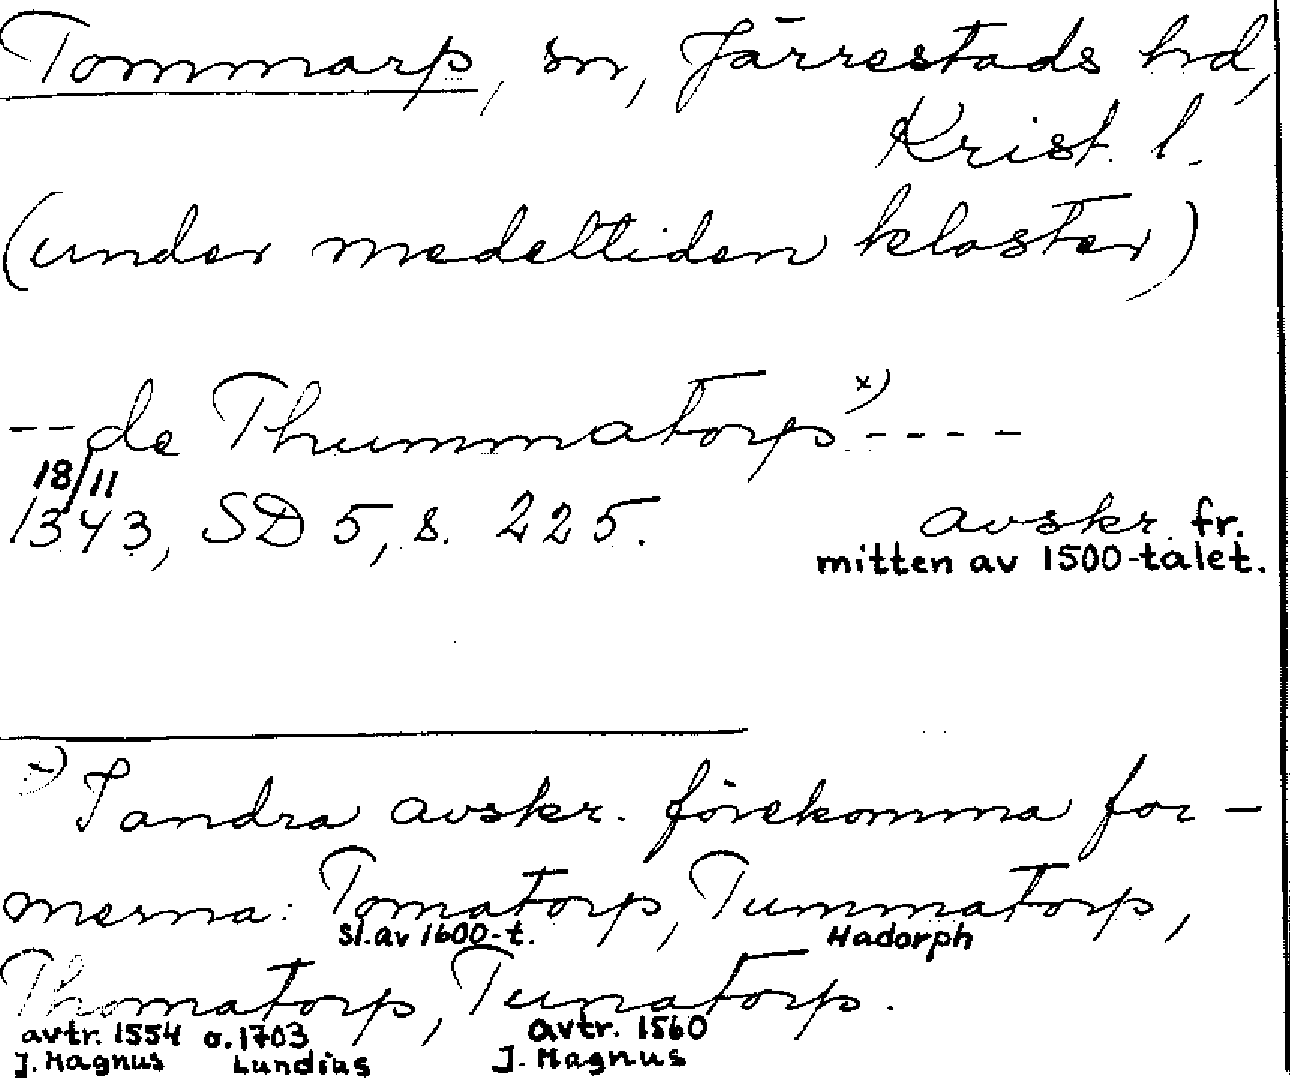 Tommarp, sn, Järrestads hd,
Krist. l.
(under medeltiden kloster)
-- de Thummatorp x) ----
18/11
1343, SD 5, s. 225. avskr. fr.
mitten av 1500-talet.
x) I andra avskr. förekomma for-
merna: Tomatorp, Tummatorp,
sl. av 1600-t. Hadorph
Thomatorp, Tunatorp.
avtr. 1554 o. 1703 avtr. 1560
J. Magnus Lundius J. Magnus